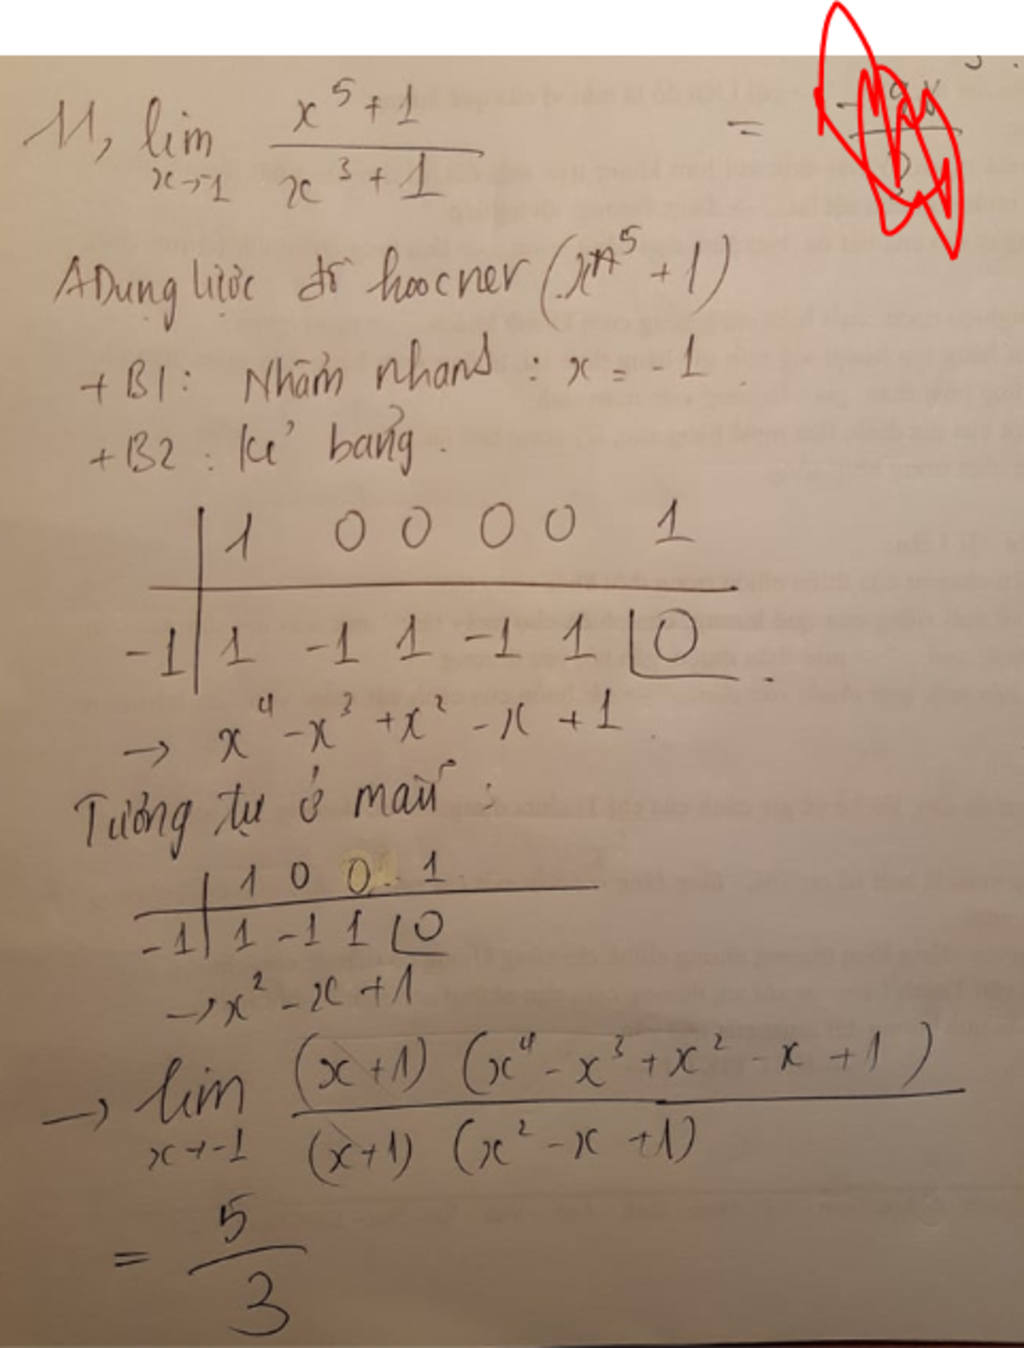 11, lim x→-1 (x^5 + 1)/(x^3 + 1) =
ADụng lược đồ hoocner (x^5 + 1)
+ B1: Nhẩm nhanh : x = -1.
+ B2 : Kẻ bảng.
1 0 0 0 0 1
-1 1 -1 1 -1 1 0
→ x^4 - x^3 + x^2 - x + 1.
Tương tự ở mẫu :
1 0 0 1
-1 1 -1 1 0
→ x^2 - x + 1
→ lim x→-1 (x+1) (x^4 - x^3 + x^2 - x + 1) / (x+1) (x^2 - x + 1)
= 5/3